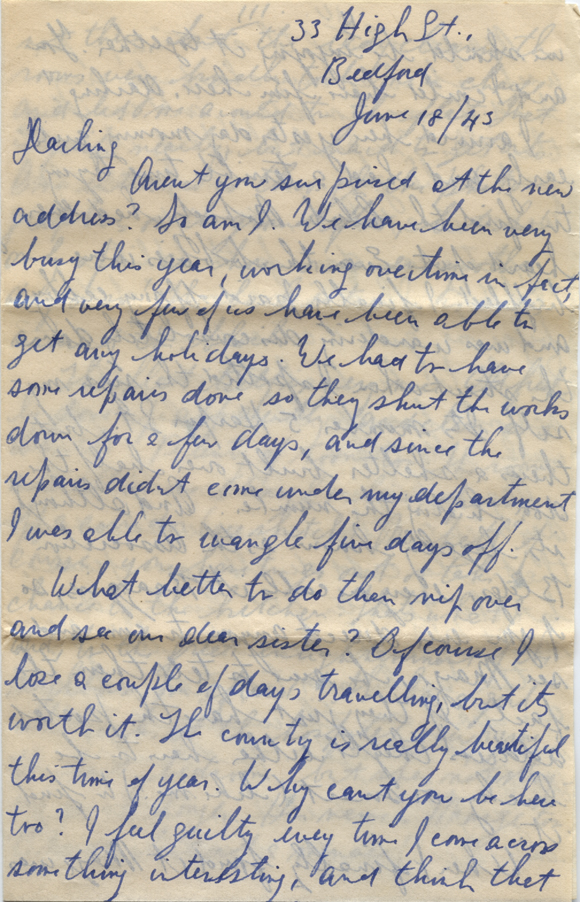 33 High St.,
Bedford
June 18/43
Darling
Arent you surprised at the new
address? So am I. We have been very
busy this year, working overtime in fact,
and very few of us have been able to
get any holidays. We had to have
some repairs done so they shut the works
down for a few days, and since the
repairs didnt come under my department
I was able to wangle five days off.
What better to do than nip over
and see our dear sister? Of course I
lose a couple of days travelling, but its
worth it. The country is really beautiful
this time of year. Why cant you be here
too? I feel guilty every time I come across
something interesting, and think that